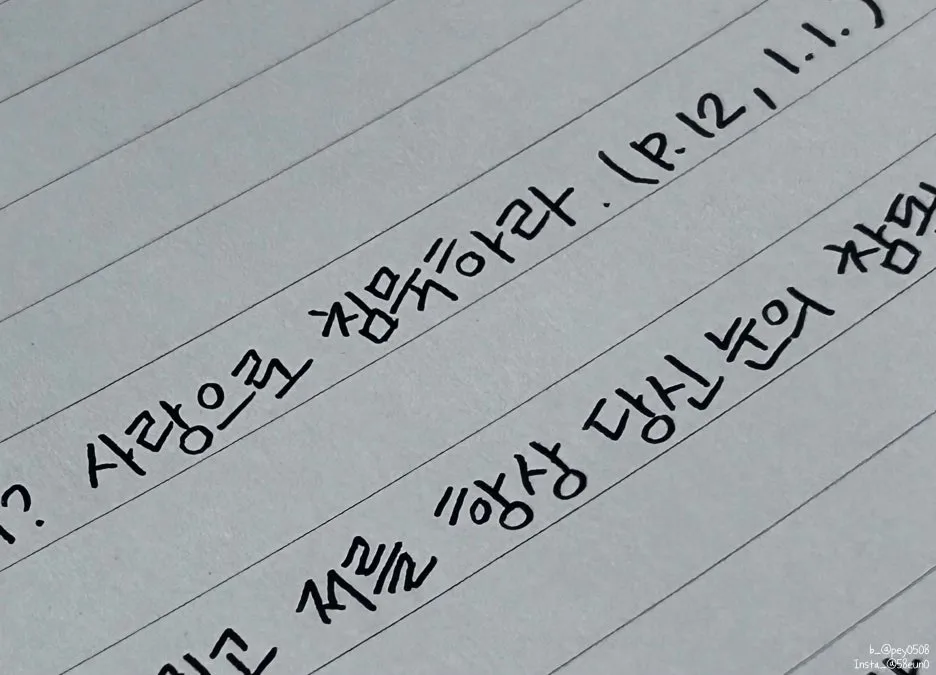 ? 사랑으로 침묵하라. (P.12, 1.1.)
고 저를 항상 당신 눈의
b_@pey0508
Insta_@58eun0